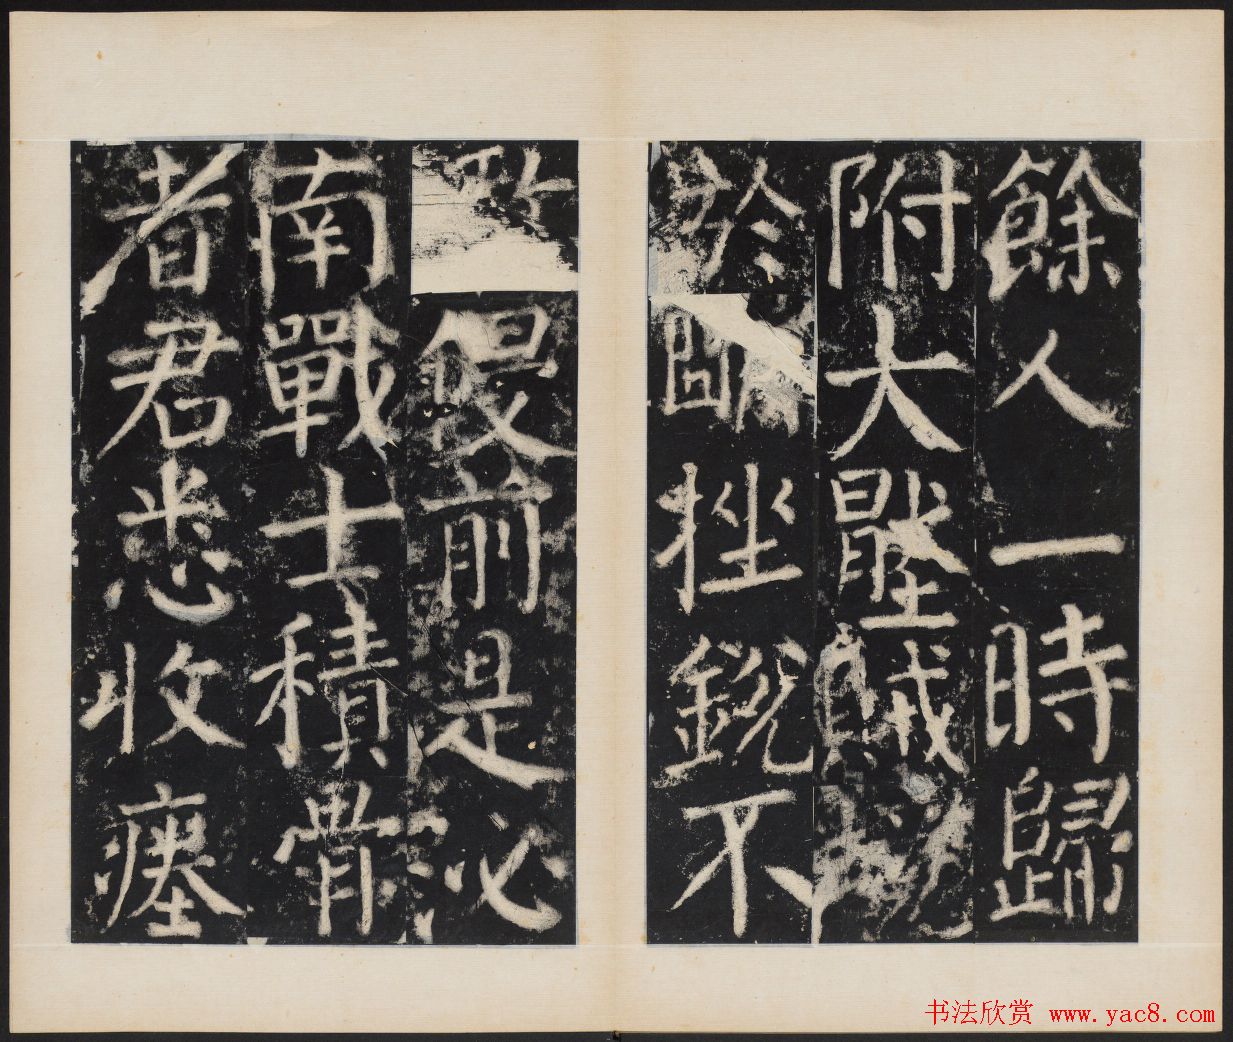 餘人一時歸
附大壓賊
於挫銳不
敢侵前是泌
南戰士積骨
者君悉收瘞
书法欣赏 www.yac8.com